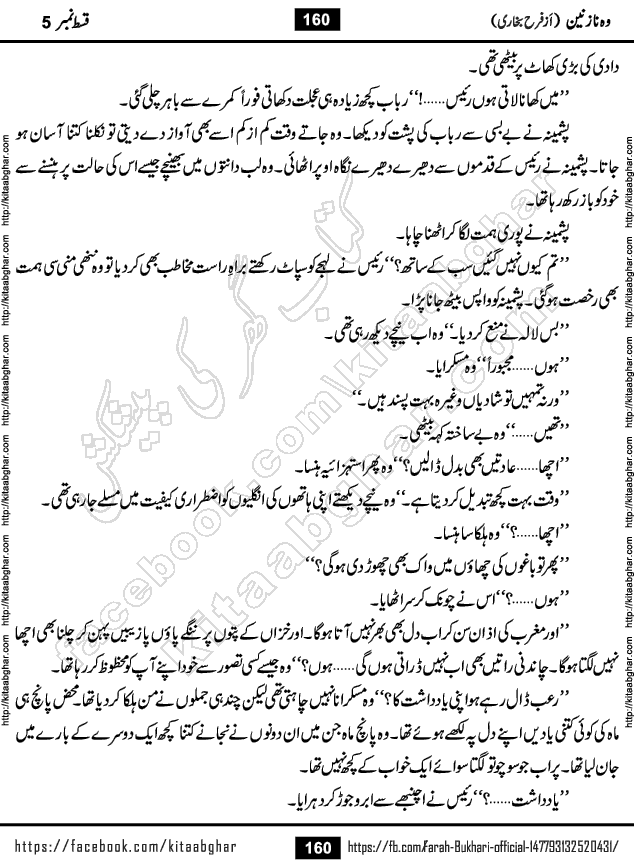 وہ نازنین (از فرح بخاری)
160
قسط نمبر 5
دادی کی بڑی کھاٹ پر بیٹھی تھی۔
’’میں کھانا لاتی ہوں رئیس......!‘‘ رباب کچھ زیادہ ہی عجلت دکھاتی فوراً کمرے سے باہر چلی گئی۔
پشمینہ نے بے بسی سے رباب کی پشت کو دیکھا۔ وہ جاتے وقت کم از کم اسے بھی آواز دے دیتی تو نکلنا کتنا آسان ہو
جاتا۔ پشمینہ نے رئیس کے قدموں سے دھیرے دھیرے نگاہ اوپر اٹھائی۔ وہ لب دانتوں میں بھینچے جیسے اس کی حالت پر ہنسنے سے
خود کو باز رکھ رہا تھا۔
پشمینہ نے پوری ہمت لگا کر اٹھنا چاہا۔
’’تم کیوں نہیں گئیں سب کے ساتھ؟‘‘ رئیس نے لہجے کو سپاٹ رکھتے براہِ راست مخاطب بھی کر دیا تو وہ ننھی منی سی ہمت
بھی رخصت ہو گئی۔ پشمینہ کو واپس بیٹھ جانا پڑا۔
’’بس لالہ نے منع کر دیا۔‘‘ وہ اب نیچے دیکھ رہی تھی۔
’’ہوں...... مجبوراً‘‘ وہ مسکرایا۔
’’ورنہ تمہیں تو شادیاں وغیرہ بہت پسند ہیں۔‘‘
’’تھیں......‘‘ وہ بے ساختہ کہہ بیٹھی۔
’’اچھا...... عادتیں بھی بدل ڈالیں؟‘‘ وہ پھر استہزائیہ ہنسا۔
’’وقت بہت کچھ تبدیل کر دیتا ہے۔‘‘ وہ نیچے دیکھتے اپنی ہاتھوں کی انگلیوں کو اضطراری کیفیت میں مسلے جا رہی تھی۔
’’اچھا......؟‘‘ وہ ہلکا سا ہنسا۔
’’پھر تو باغوں کی چھاؤں میں واک بھی چھوڑ دی ہو گی؟‘‘
’’ہوں......؟‘‘ اس نے چونک کر سر اٹھایا۔
’’اور مغرب کی اذان سن کر اب دل بھی بھر نہیں آتا ہوگا۔ اور خزاں کے پتوں پر ننگے پاؤں پازیبیں پہن کر چلنا بھی اچھا
نہیں لگتا ہوگا۔ چاندنی راتیں بھی اب نہیں ڈراتی ہوں گی...... ہوں؟‘‘ وہ جیسے کسی تصور سے خود اپنے آپ کو محظوظ کر رہا تھا۔
’’رعب ڈال رہے ہو اپنی یادداشت کا؟‘‘ وہ مسکرانا نہیں چاہتی تھی لیکن چند ہی جملوں نے من ہلکا کر دیا تھا۔ محض پانچ ہی
ماہ کی کوئی کتنی یادیں اپنے دل پہ لکھے ہوئے تھا۔ وہ پانچ ماہ جن میں ان دونوں نے نجانے کتنا کچھ ایک دوسرے کے بارے میں
جان لیا تھا۔ پر اب جو سوچو تو لگتا سوائے ایک خواب کے کچھ نہیں تھا۔
’’یادداشت......؟‘‘ رئیس نے اچنبھے سے ابرو جوڑ کر دہرایا۔
کتاب گھر کی پیشکش
facebook.com/kitaabghar
kitaabghar.com
http://kitaabghar.com http://kitaabghar.com http://kitaabghar.com http://kitaabghar.com http://kitaabghar.com http://kitaabghar.com
http://kitaabghar.com http://kitaabghar.com http://kitaabghar.com http://kitaabghar.com http://kitaabghar.com http://kitaabghar.com
https://facebook.com/kitaabghar
160
https://fb.com/Farah-Bukhari-official-147793132520431/